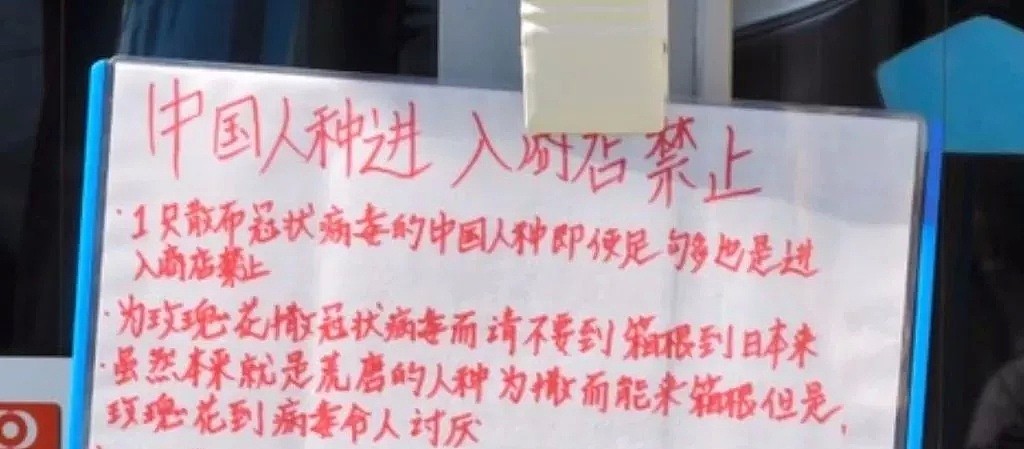 中国人种进入商店禁止
·1只散布冠状病毒的中国人种即便足够多也是进
入商店禁止
·为玫瑰花撒冠状病毒而请不要到箱根到日本来
·虽然本来就是荒磨的人种为撒而能来箱根但是,
玫瑰花到病毒令人讨厌